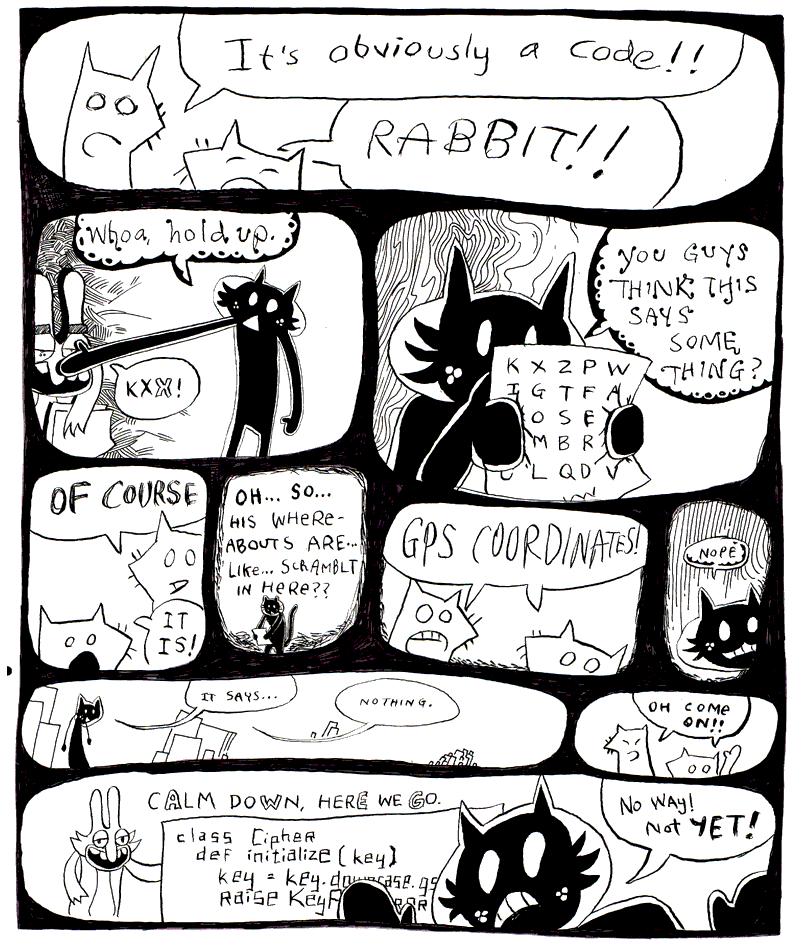 It's obviously a code!!
RABBIT!!
Whoa, hold up.
KXX!
YOU GUYS
THINK THIS
SAYS
SOME
THING?
K X Z P W
I G T F A
O S E
M B R
L Q D V
OF COURSE
IT
IS!
OH... SO...
HIS WHERE-
ABOUTS ARE...
LIKE... SCRAMBLT
IN HERE??
GPS COORDINATES!
NOPE
IT SAYS...
NOTHING.
OH COME
ON!!
CALM DOWN, HERE WE GO.
class Cipher
def initialize (key)
key = key.downcase.gs
Raise Key
NO WAY!
Not YET!